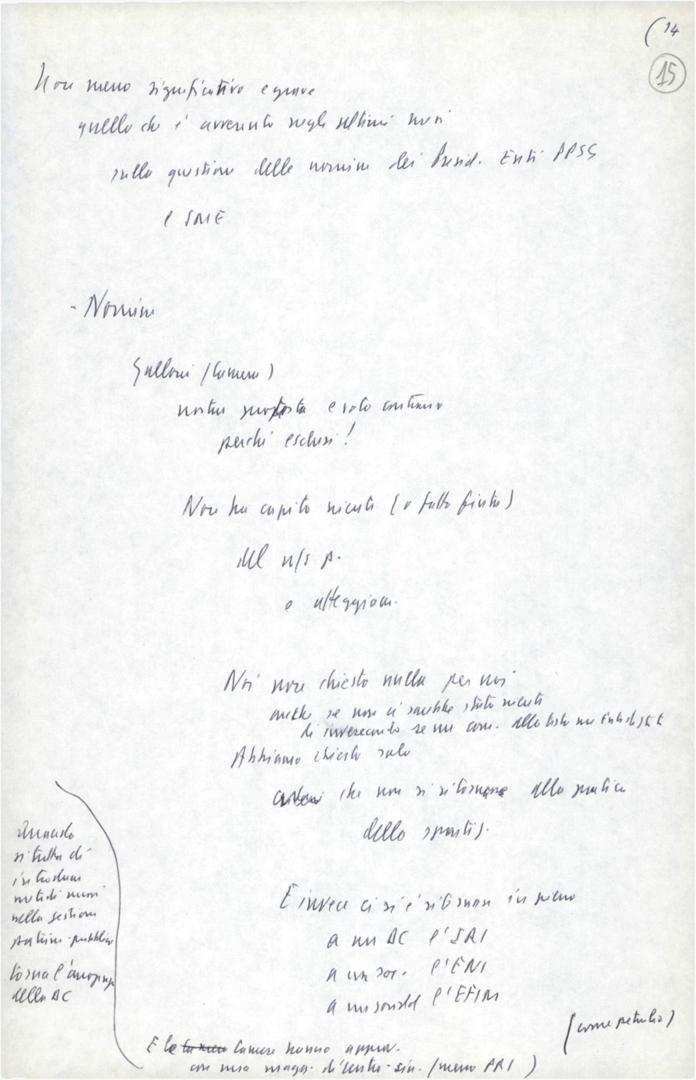 (14
15
Non meno significativo e grave
quello che è avvenuto negli ultimi mesi
sulla questione delle nomine dei Presid. Enti PPSS
e SME
- Nomine
Galloni (Camera)
nostra protesta e solo
perché esclusi!
Non ha capito niente (o fatto finta)
del n/s p.
o atteggiam.
Noi non chiesto nulla per noi
anche se non ci sarebbe stato niente
di inverecondo se un com. alla testa
Abbiamo chiesto solo
che non si ritornasse alla pratica
della spartiz.
E invece ci si è ritornati in pieno
a un DC l'IRI
a un soc. l'ENI
a un socdd l'EFIM
(come petrolio)
Quando
si tratta di
introdurre
metodi nuovi
nella gestione
pubblica
torna l'arroganza
della DC
E le Camere hanno approv.
con una magg. di centro-sin. (meno PRI)